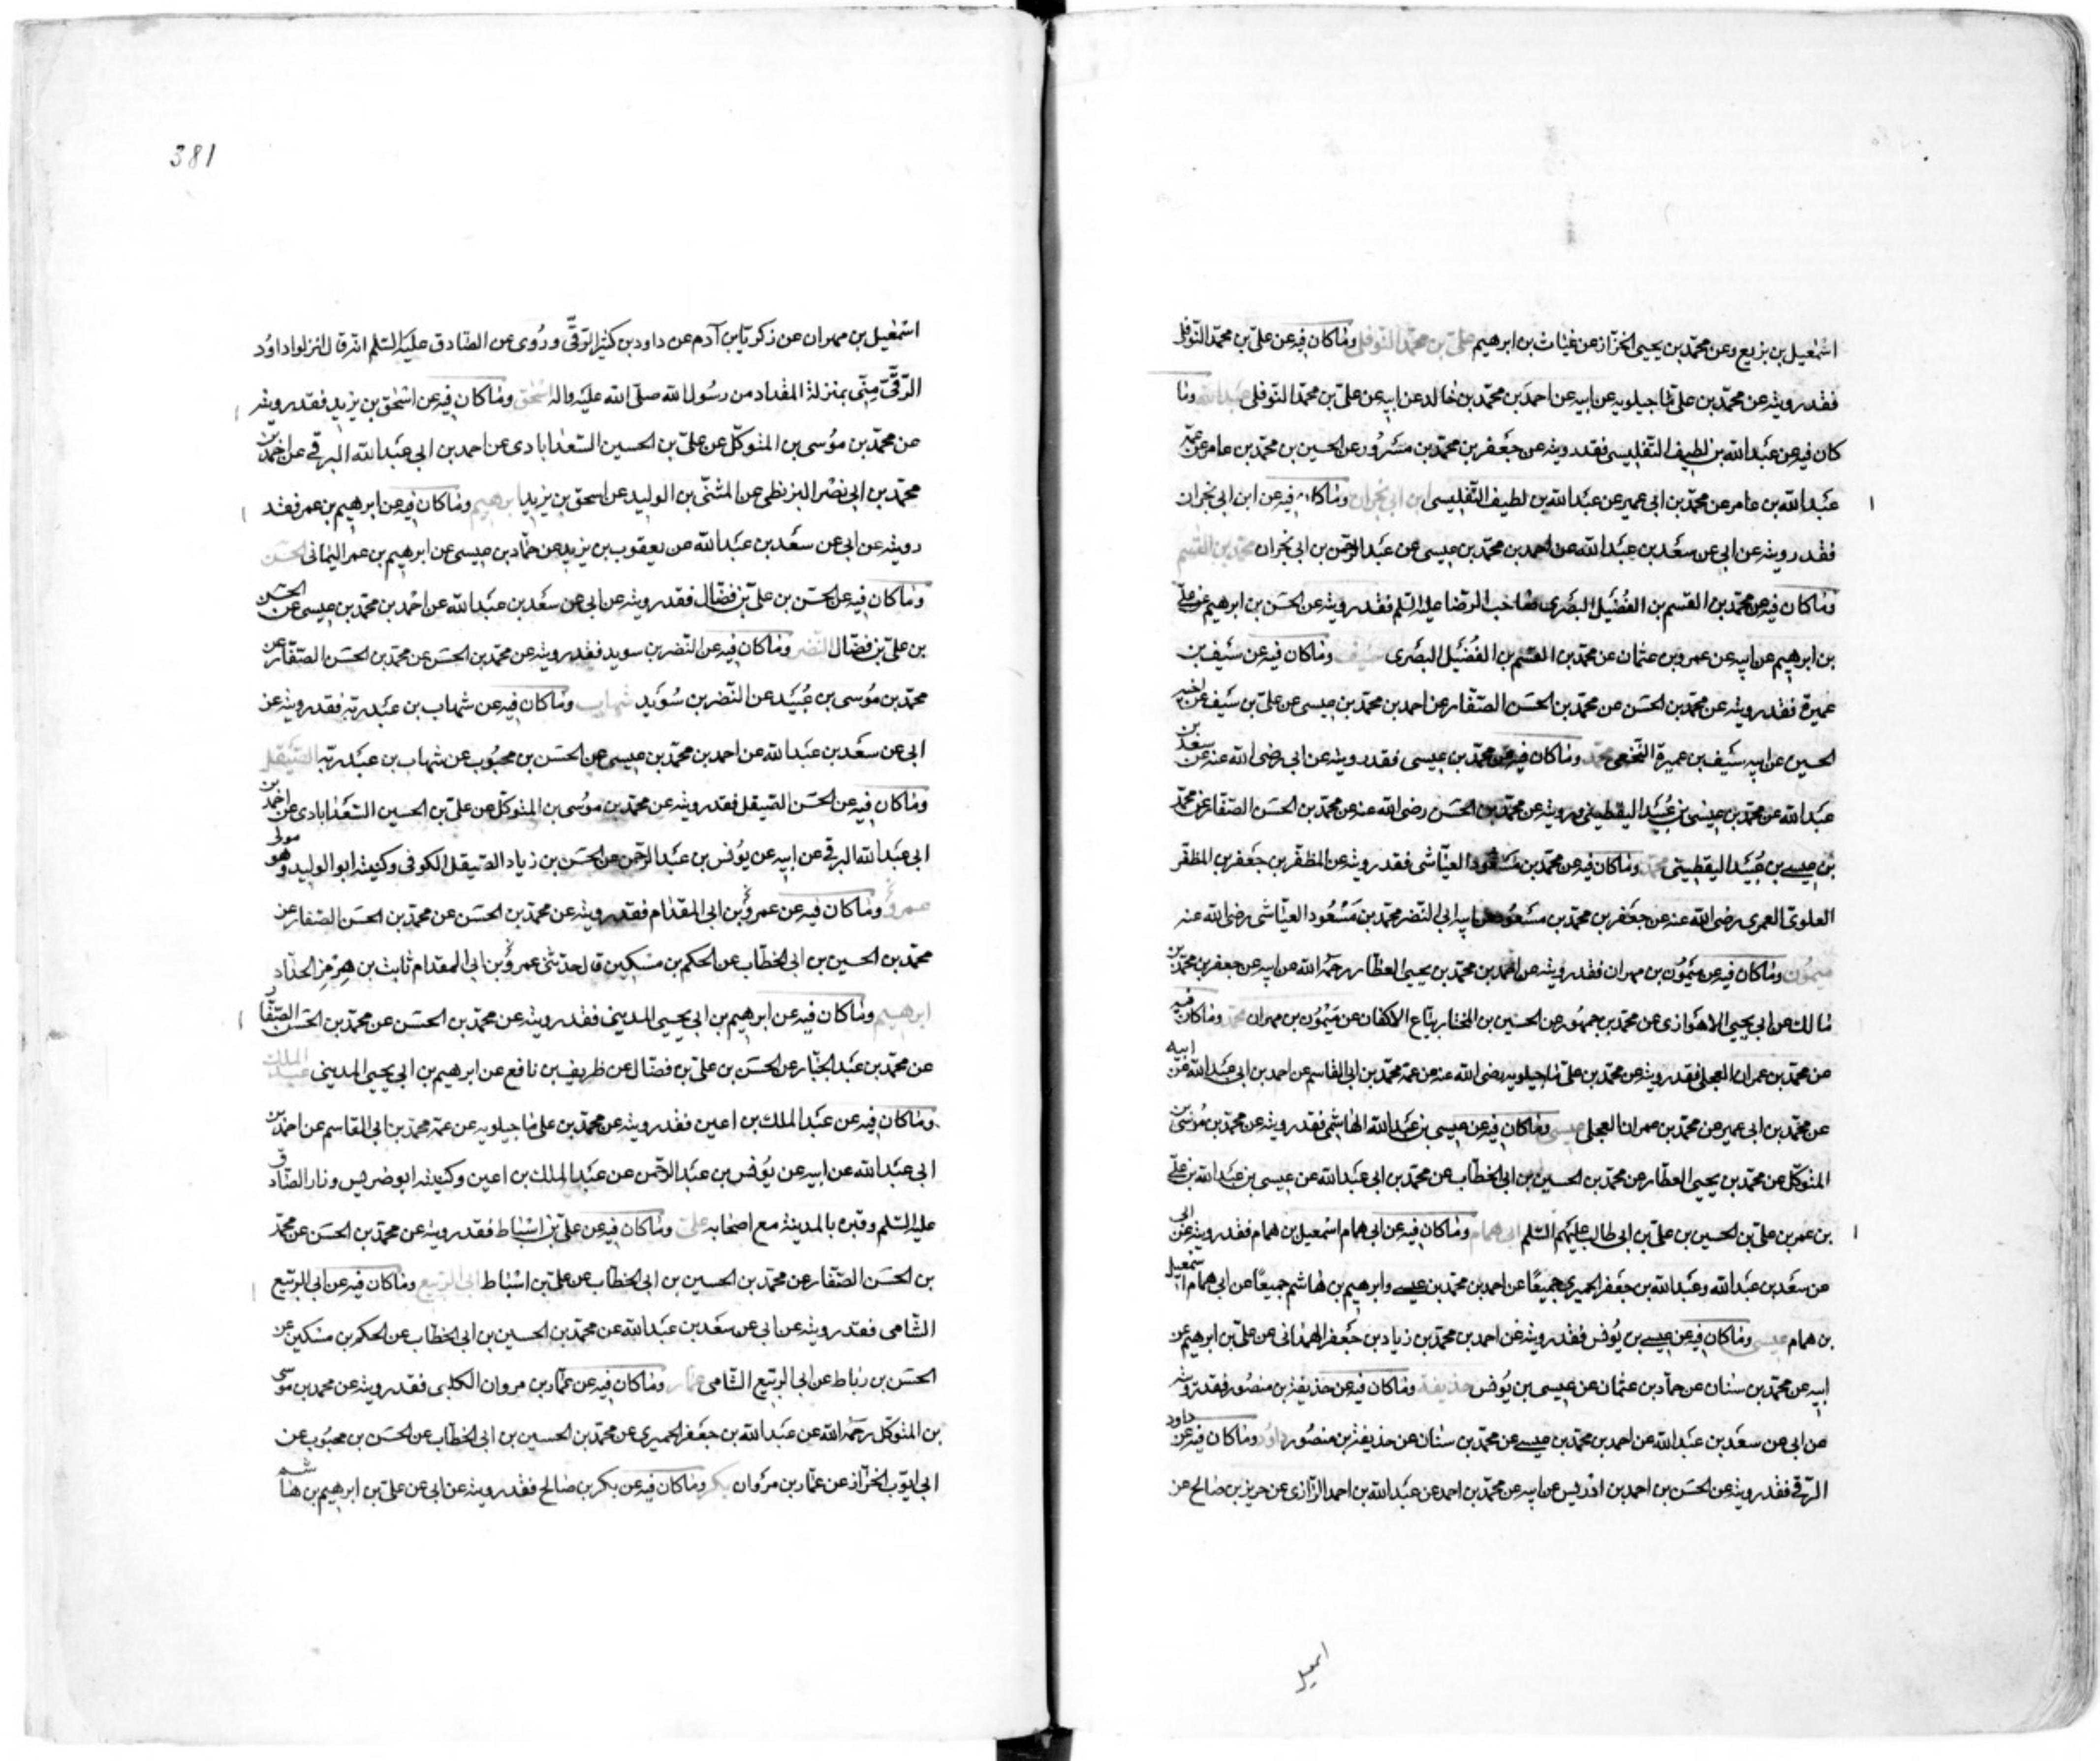 اسمعيل بن بزيع وعن محمد بن يحيى الخزاز عن غياث بن ابرهيم على بن محمد النوفلى وما كان فيه عن على بن محمد النوفلى
فقد رويته عن محمد بن على ماجيلويه عن ابيه عن احمد بن محمد بن خالد عن ابيه عن على بن محمد النوفلى عبد الله وما
كان فيه عن عبد الله بن لطيف التفليسى فقد رويته عن جعفر بن محمد بن مسرور عن الحسين بن محمد بن عامر عن عمه
عبد الله بن عامر عن محمد بن ابى عمير عن عبد الله بن لطيف التفليسى ابن ابى نجران وما كان فيه عن ابن ابى نجران
فقد رويته عن ابى عن سعد بن عبد الله عن احمد بن محمد بن عيسى عن عبد الرحمن بن ابى نجران محمد بن القسم
وما كان فيه عن محمد بن القسم بن الفضيل البصرى صاحب الرضا عليه السلم فقد رويته عن الحسن بن ابرهيم عن على
بن ابرهيم عن ابيه عن عمرو بن عثمان عن محمد بن القسم بن الفضيل البصرى سيف وما كان فيه عن سيف بن
عميرة فقد رويته عن محمد بن الحسن عن محمد بن الحسن الصفار عن احمد بن محمد بن عيسى عن على بن سيف عن اخيه
الحسين عن ابيه سيف بن عميرة النخعى محمد وما كان فيه عن محمد بن عيسى فقد رويته عن ابى رضى الله عنه عن سعد بن
عبد الله عن محمد بن عيسى بن عبيد اليقطينى ورويته عن محمد بن الحسن رضى الله عنه عن محمد بن الحسن الصفار عن محمد
بن عيسى بن عبيد اليقطينى محمد وما كان فيه عن محمد بن مسعود العياشى فقد رويته عن المظفر بن جعفر بن المظفر
العلوى العمرى رضى الله عنه عن جعفر بن محمد بن مسعود عن ابيه ابى النضر محمد بن مسعود العياشى رضى الله عنه
ميمون وما كان فيه عن ميمون بن مهران فقد رويته عن احمد بن محمد بن يحيى العطار رحمه الله عن ابيه عن جعفر بن محمد بن
مالك عن ابى يحيى الاهوازى عن محمد بن جمهور عن الحسين بن المختار بياع الاكفان عن ميمون بن مهران محمد وما كان فيه
عن محمد بن عمران العجلى فقد رويته عن محمد بن على ماجيلويه رضى الله عنه عن عمه محمد بن ابى القاسم عن احمد بن ابى عبد الله عن ابيه
عن محمد بن ابى عمير عن محمد بن عمران العجلى عيسى وما كان فيه عن عيسى بن عبد الله الهاشمى فقد رويته عن محمد بن موسى بن
المتوكل عن محمد بن يحيى العطار عن محمد بن الحسين بن ابى الخطاب عن محمد بن ابى عبد الله عن عيسى بن عبد الله بن على
بن عمر بن على بن الحسين بن على بن ابى طالب عليهم السلم ابى همام وما كان فيه عن ابى همام اسمعيل بن همام فقد رويته عن ابى
عن سعد بن عبد الله وعبد الله بن جعفر الحميرى جميعًا عن احمد بن محمد بن عيسى وابرهيم بن هاشم جميعًا عن ابى همام اسمعيل
بن همام عيسى وما كان فيه عن عيسى بن يونس فقد رويته عن احمد بن محمد بن زياد بن جعفر الهمدانى عن على بن ابرهيم عن
ابيه عن محمد بن سنان عن حماد بن عثمان عن عيسى بن يونس حذيفة وما كان فيه عن حذيفة بن منصور فقد رويته
عن ابى عن سعد بن عبد الله عن احمد بن محمد بن عيسى عن محمد بن سنان عن حذيفة بن منصور داود وما كان فيه عن داود
الرقى فقد رويته عن الحسن بن احمد بن ادريس عن ابيه عن محمد بن احمد عن عبد الله بن احمد الرازى عن حريز بن صالح عن
اسمعيل
381
اسمعيل بن مهران عن زكريا بن آدم عن داود بن كثير الرقى وروى عن الصادق عليه السلم انه قال انزلوا داود
الرقى منى بمنزلة المقداد من رسول الله صلى الله عليه واله اسحق وما كان فيه عن اسحق بن يزيد فقد رويته
عن محمد بن موسى بن المتوكل عن على بن الحسين السعدابادى عن احمد بن ابى عبد الله البرقى عن احمد بن
محمد بن ابى نصر البزنطى عن المثنى بن الوليد عن اسحق بن يزيد ابرهيم وما كان فيه عن ابرهيم بن عمر فقد
رويته عن ابى عن سعد بن عبد الله عن يعقوب بن يزيد عن حماد بن عيسى عن ابرهيم بن عمر اليمانى الحسن
وما كان فيه عن الحسن بن على بن فضال فقد رويته عن ابى عن سعد بن عبد الله عن احمد بن محمد بن عيسى عن الحسن
بن على بن فضال النضر وما كان فيه عن النضر بن سويد فقد رويته عن محمد بن الحسن عن محمد بن الحسن الصفار عن
محمد بن موسى بن عبيد عن النضر بن سويد شهاب وما كان فيه عن شهاب بن عبد ربه فقد رويته عن
ابى عن سعد بن عبد الله عن احمد بن محمد بن عيسى عن الحسن بن محبوب عن شهاب بن عبد ربه الصيقل
وما كان فيه عن الحسن الصيقل فقد رويته عن محمد بن موسى بن المتوكل عن على بن الحسين السعدابادى عن احمد بن
ابى عبد الله البرقى عن ابيه عن يونس بن عبد الرحمن عن الحسن بن زياد الصيقل الكوفى وكنيته ابو الوليد وهو مولى
عمرو وما كان فيه عن عمرو بن ابى المقدام فقد رويته عن محمد بن الحسن عن محمد بن الحسن الصفار عن
محمد بن الحسين بن ابى الخطاب عن الحكم بن مسكين قال حدثنى عمرو بن ابى المقدام ثابت بن هرمز الحداد
ابرهيم وما كان فيه عن ابرهيم بن ابى يحيى المدينى فقد رويته عن محمد بن الحسن عن محمد بن الحسن الصفار
عن محمد بن عبد الجبار عن الحسن بن على بن فضال عن ظريف بن ناصح عن ابرهيم بن ابى يحيى المدينى عبد الملك
وما كان فيه عن عبد الملك بن اعين فقد رويته عن محمد بن على ماجيلويه عن عمه محمد بن ابى القاسم عن احمد بن
ابى عبد الله عن ابيه عن يونس بن عبد الرحمن عن عبد الملك بن اعين وكنيته ابو ضريس وزار الصادق
عليه السلم وقبره بالمدينة مع اصحابه على وما كان فيه عن على بن اسباط فقد رويته عن محمد بن الحسن عن محمد
بن الحسن الصفار عن محمد بن الحسين بن ابى الخطاب عن على بن اسباط ابى الربيع وما كان فيه عن ابى الربيع
الشامى فقد رويته عن ابى عن سعد بن عبد الله عن محمد بن الحسين بن ابى الخطاب عن الحكم بن مسكين عن
الحسن بن رباط عن ابى الربيع الشامى عمار وما كان فيه عن عمار بن مروان الكلبى فقد رويته عن محمد بن موسى
بن المتوكل رحمه الله عن عبد الله بن جعفر الحميرى عن محمد بن الحسين بن ابى الخطاب عن الحسن بن محبوب عن
ابى ايوب الخزاز عن عمار بن مروان بكر وما كان فيه عن بكر بن صالح فقد رويته عن ابى عن على بن ابرهيم بن هاشم